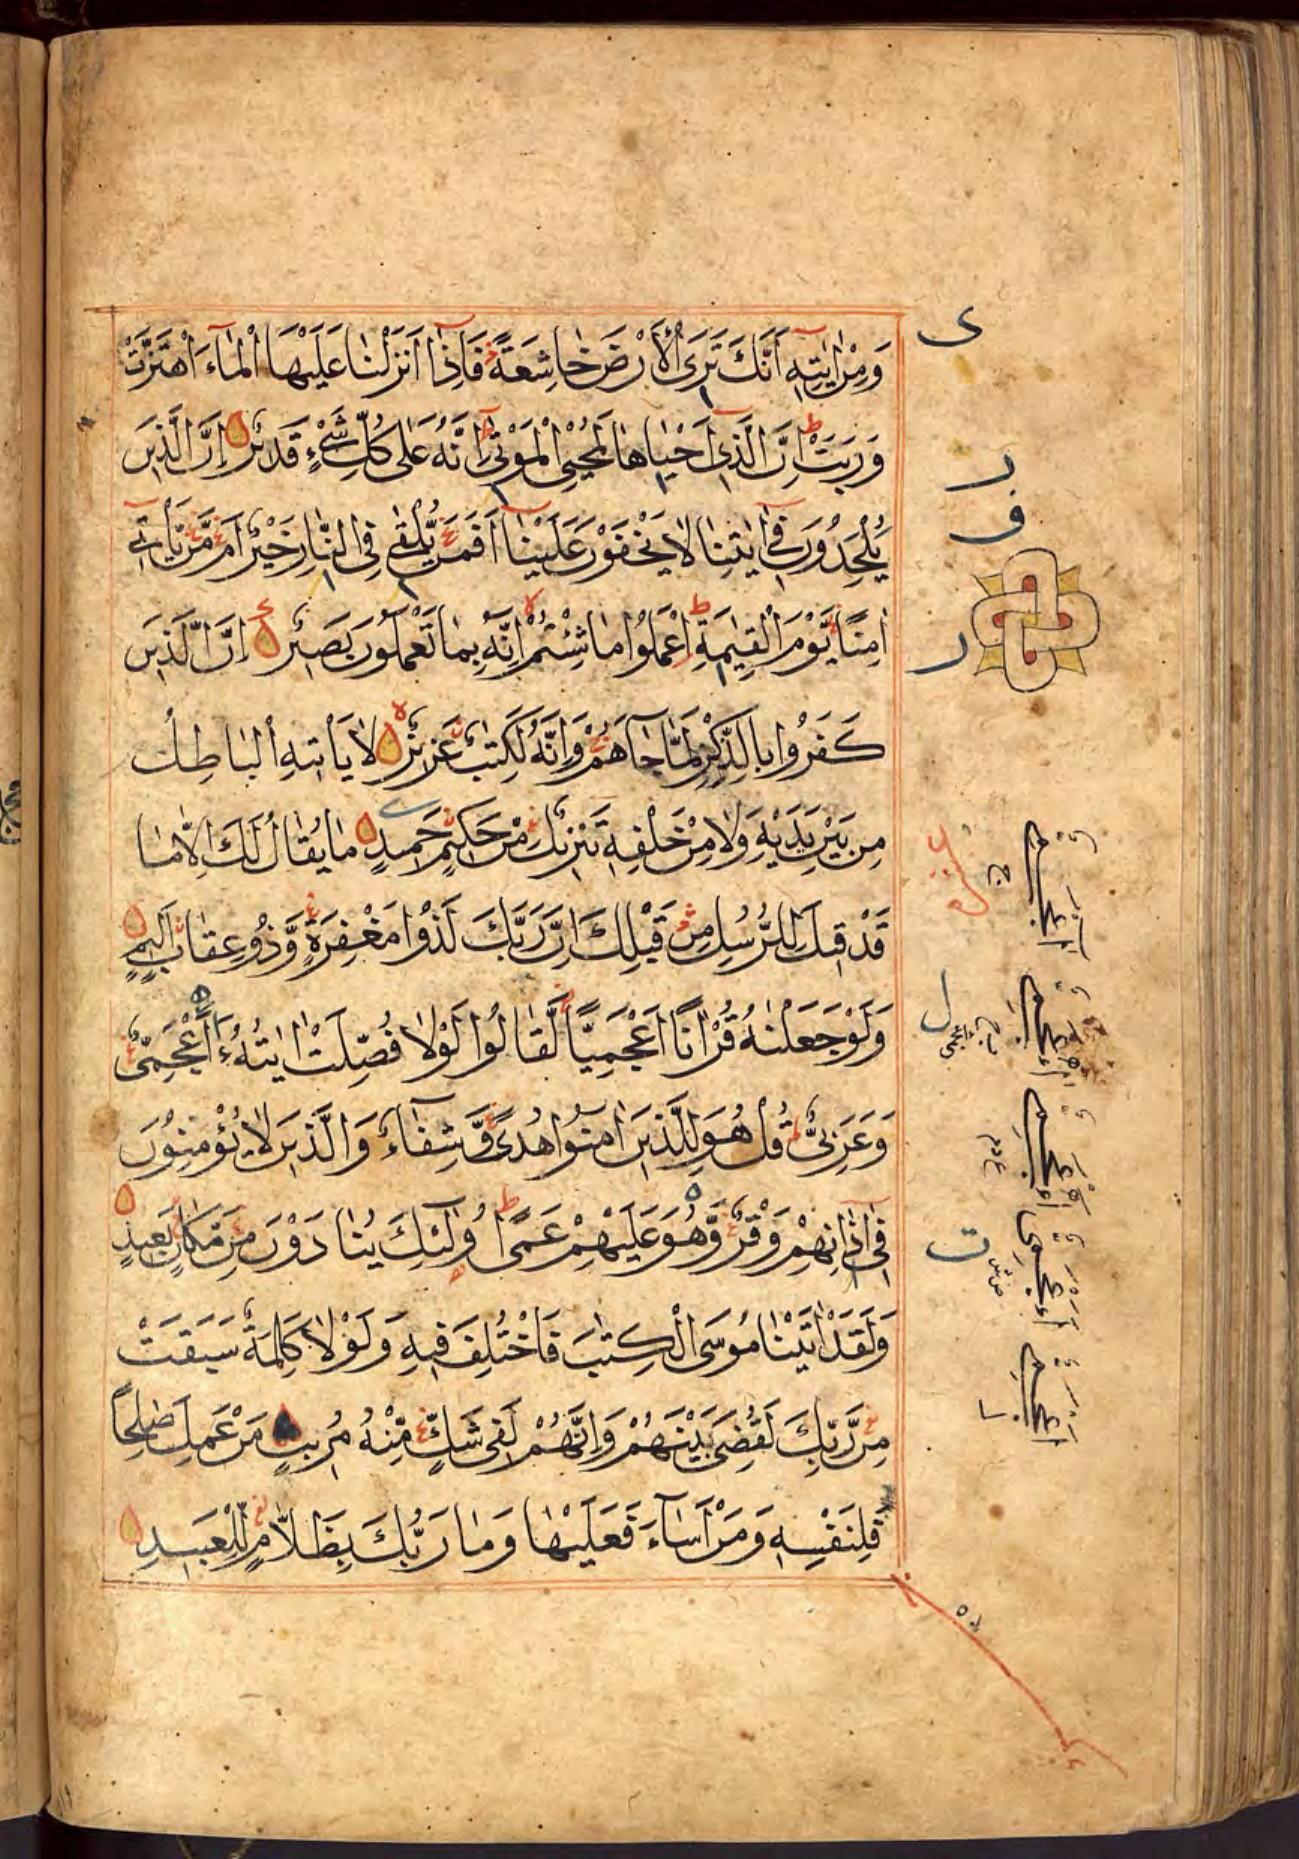 وَمِنْ اٰيٰتِهٖٓ اَنَّكَ تَرَى الْاَرْضَ خَاشِعَةً فَاِذَآ اَنْزَلْنَا عَلَيْهَا الْمَآءَ اهْتَزَّتْ
وَرَبَتْ اِنَّ الَّذِىٓ اَحْيَاهَا لَمُحْيِ الْمَوْتٰى اِنَّهُ عَلٰى كُلِّ شَىْءٍ قَدِيْرٌ اِنَّ الَّذِيْنَ
يُلْحِدُوْنَ فِىٓ اٰيٰتِنَا لَا يَخْفَوْنَ عَلَيْنَا اَفَمَنْ يُّلْقٰى فِى النَّارِ خَيْرٌ اَمْ مَّنْ يَّاْتِىٓ
اٰمِنًا يَّوْمَ الْقِيٰمَةِ اِعْمَلُوْا مَا شِئْتُمْ اِنَّهُ بِمَا تَعْمَلُوْنَ بَصِيْرٌ اِنَّ الَّذِيْنَ
كَفَرُوْا بِالذِّكْرِ لَمَّا جَآءَهُمْ وَاِنَّهُ لَكِتٰبٌ عَزِيْزٌ لَا يَاْتِيْهِ الْبَاطِلُ
مِنْ بَيْنِ يَدَيْهِ وَلَا مِنْ خَلْفِهٖ تَنْزِيْلٌ مِّنْ حَكِيْمٍ حَمِيْدٍ مَا يُقَالُ لَكَ اِلَّا مَا
قَدْ قِيْلَ لِلرُّسُلِ مِنْ قَبْلِكَ اِنَّ رَبَّكَ لَذُوْا مَغْفِرَةٍ وَّذُوْ عِقَابٍ اَلِيْمٍ
وَلَوْ جَعَلْنٰهُ قُرْاٰنًا اَعْجَمِيًّا لَّقَالُوْا لَوْلَا فُصِّلَتْ اٰيٰتُهُ ءَاَعْجَمِىٌّ
وَعَرَبِىٌّ قُلْ هُوَ لِلَّذِيْنَ اٰمَنُوْا هُدًى وَّشِفَآءٌ وَالَّذِيْنَ لَا يُؤْمِنُوْنَ
فِىٓ اٰذَانِهِمْ وَقْرٌ وَّهُوَ عَلَيْهِمْ عَمًى اُولٰٓئِكَ يُنَادَوْنَ مِنْ مَّكَانٍ بَعِيْدٍ
وَلَقَدْ اٰتَيْنَا مُوْسَى الْكِتٰبَ فَاخْتُلِفَ فِيْهِ وَلَوْلَا كَلِمَةٌ سَبَقَتْ
مِنْ رَّبِّكَ لَقُضِىَ بَيْنَهُمْ وَاِنَّهُمْ لَفِى شَكٍّ مِّنْهُ مُرِيْبٍ مَنْ عَمِلَ صٰلِحًا
فَلِنَفْسِهٖ وَمَنْ اَسَآءَ فَعَلَيْهَا وَمَا رَبُّكَ بِظَلَّامٍ لِّلْعَبِيْدِ